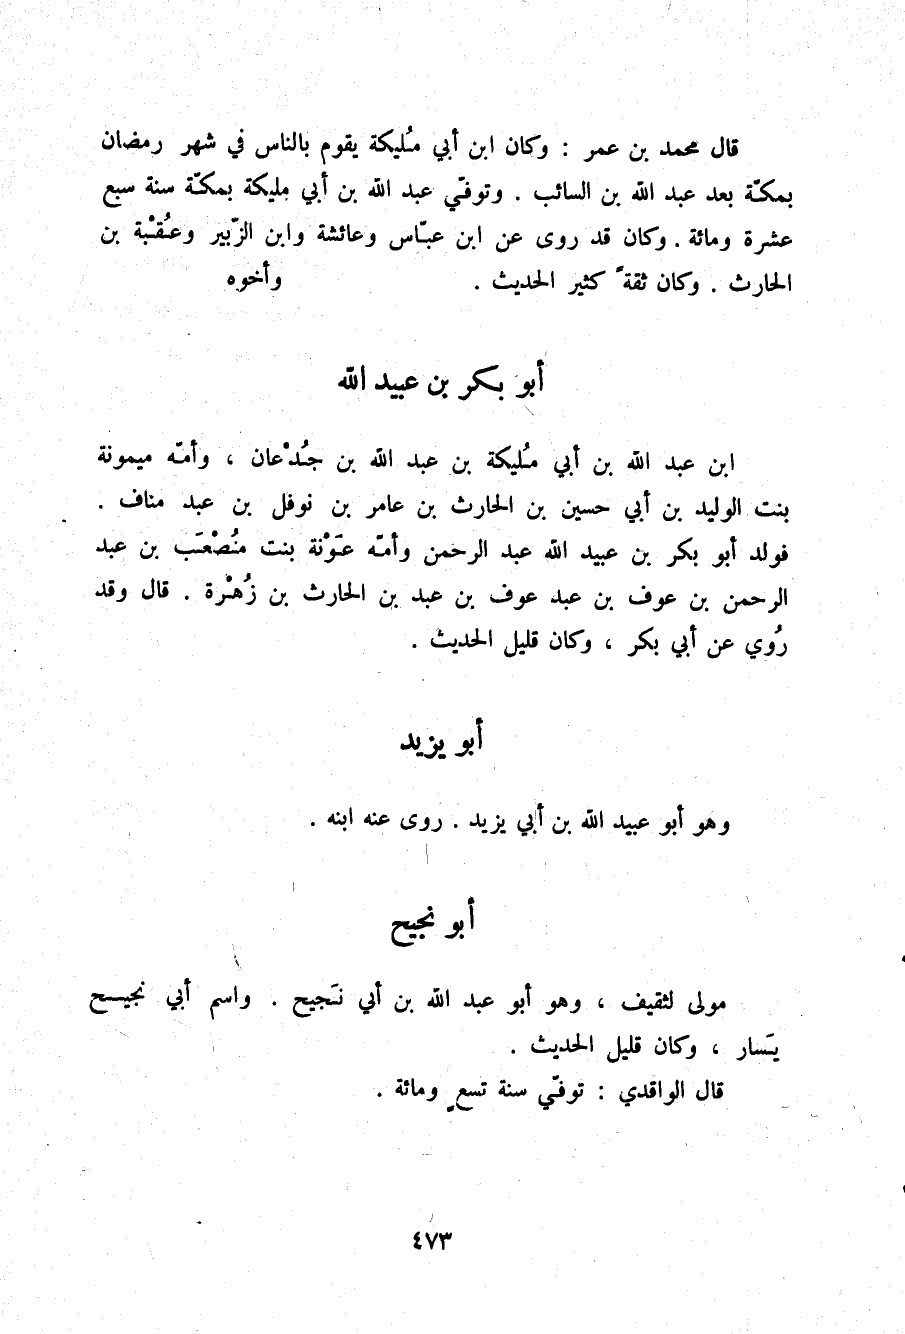 قال محمد بن عمر : وكان ابن أبي مُليكة يقوم بالناس في شهر رمضان
بمكّة بعد عبد الله بن السائب . وتوفّي عبد الله بن أبي مليكة بمكّة سنة سبع
عشرة ومائة . وكان قد روى عن ابن عبّاس وعائشة وابن الزّبير وعُقْبة بن
الحارث . وكان ثقةً كثير الحديث . وأخوه
أبو بكر بن عبيد الله
ابن عبد الله بن أبي مُليكة بن عبد الله بن جُدْعان ، وأمّه ميمونة
بنت الوليد بن أبي حسين بن الحارث بن عامر بن نوفل بن عبد مناف .
فولد أبو بكر بن عبيد الله عبد الرحمن وأمّه عَوْنة بنت مُصْعَب بن عبد
الرحمن بن عوف بن عبد عوف بن عبد بن الحارث بن زُهْرة . قال وقد
رُوي عن أبي بكر ، وكان قليل الحديث .
أبو يزيد
وهو أبو عبيد الله بن أبي يزيد . روى عنه ابنه .
أبو نجيح
مولى لثقيف ، وهو أبو عبد الله بن أبي نَجيح . واسم أبي نجيح
يَسار ، وكان قليل الحديث .
قال الواقدي : توفّي سنة تسعٍ ومائة .
٤٧٣